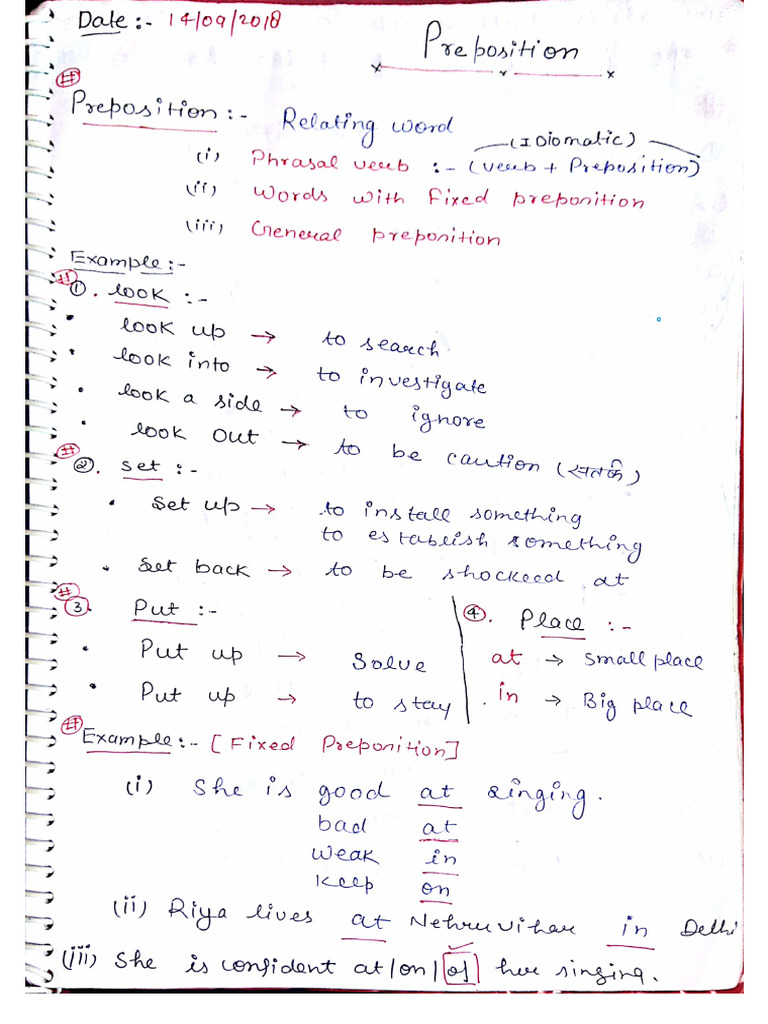 Date :- 14/09/2018
Preposition
Preposition :- Relating word
(Idiomatic)
(i) Phrasal verb :- (verb + Preposition)
(ii) Words with Fixed preposition
(iii) General preposition
Example :-
① . look :-
• look up → to search.
• look into → to investigate
• look a side → to ignore
• look out → to be caution (सतर्क)
② . Set :-
• Set up → to install something
to establish something
• Set back → to be shockeed at
③ Put :-
• Put up → Solve
• Put up → to stay
④ . Place :-
at → Small place
in → Big place
Example :- [Fixed Preposition]
(i) She is good at singing.
bad at
weak in
keep on
(ii) Riya lives at Nehru vihar in Delhi
(iii) She is confident at/on/of her singing.